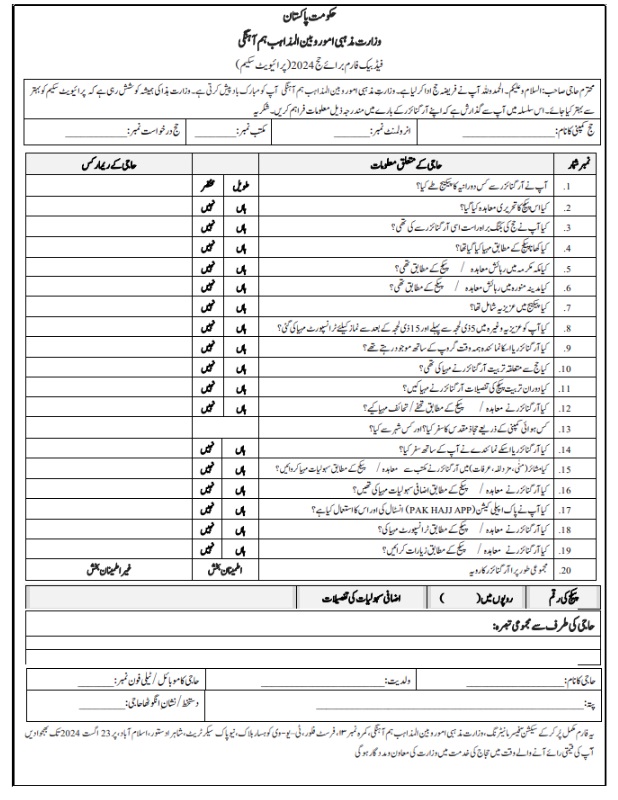 حکومت پاکستان
وزارت مذہبی امور و بین المذاہب ہم آہنگی
فیڈ بیک فارم برائے حج 2024 (پرائیویٹ سکیم)
محترم حاجی صاحب: السلام و علیکم۔ الحمد واللہ آپ نے فریضہ حج ادا کر لیا ہے۔ وزارت مذہبی امور و بین المذاہب ہم آہنگی آپ کو مبارک باد پیش کرتی ہے۔ وزارت ہذا کی ہمیشہ کوشش رہی ہے کہ پرائیویٹ سکیم کو بہتر
سے بہتر کیا جائے۔ اس سلسلہ میں آپ سے گذارش ہے کہ اپنے آرگنائزر کے بارے میں مندرجہ ذیل معلومات فراہم کریں۔ شکریہ
حج کمپنی کا نام: انرولمنٹ نمبر: مکتب نمبر: حج درخواست نمبر:
نمبر شمار حاجی کے متعلق معلومات حاجی کے ریمارکس
1. آپ نے آرگنائزر سے کس دورانیہ کا پیکیج طے کیا؟ طویل مختصر
2. کیا اس پیکج کا تحریری معاہدہ کیا گیا؟ ہاں نہیں
3. کیا آپ نے حج کی بکنگ براہ راست اسی آرگنائزر سے کی تھی؟ ہاں نہیں
4. کیا کھانا پیکج کے مطابق مہیا کیا گیا تھا؟ ہاں نہیں
5. کیا مکہ مکرمہ میں رہائش معاہدہ / پیکج کے مطابق تھی؟ ہاں نہیں
6. کیا مدینہ منورہ میں رہائش معاہدہ / پیکج کے مطابق تھی؟ ہاں نہیں
7. کیا پیکیج میں عزیزیہ شامل تھا؟ ہاں نہیں
8. کیا آپ کو عزیزیہ وغیرہ میں 5 ذی الحجہ سے پہلے اور 15 ذی الحجہ کے بعد سے نماز کیلئے ٹرانسپورٹ مہیا کی گئی؟ ہاں نہیں
9. کیا آرگنائزر یا اسکا نمائندہ ہمہ وقت گروپ کے ساتھ موجود رہتے تھے؟ ہاں نہیں
10. کیا حج سے متعلقہ تربیت آرگنائزر نے مہیا کی تھی؟ ہاں نہیں
11. کیا دوران تربیت پیکج کی تفصیلات آرگنائزر نے مہیا کیں؟ ہاں نہیں
12. کیا آرگنائزر نے معاہدہ / پیکج کے مطابق تحفے / تحائف مہیا کیے؟ ہاں نہیں
13. کس ہوائی کمپنی کے ذریعے حجاز مقدس کا سفر کیا؟ اور کس شہر سے کیا؟
14. کیا آرگنائزر یا اسکے نمائندے نے آپ کے ساتھ سفر کیا؟ ہاں نہیں
15. کیا مشائر (منٰی، مزدلفہ، عرفات) میں آرگنائزر نے مکتب سے معاہدہ / پیکج کے مطابق سہولیات مہیا کروائیں؟ ہاں نہیں
16. کیا آرگنائزر نے معاہدہ / پیکج کے مطابق اضافی سہولیات مہیا کی تھیں؟ ہاں نہیں
17. کیا آپ نے پاک حج ایپلی کیشن (PAK HAJJ APP) انسٹال کی اور اس کا استعمال کیا ہے؟ ہاں نہیں
18. کیا آرگنائزر نے معاہدہ / پیکج کے مطابق ٹرانسپورٹ مہیا کی؟ ہاں نہیں
19. کیا آرگنائزر نے معاہدہ / پیکج کے مطابق زیارات کرائیں؟ ہاں نہیں
20. مجموعی طور پر آرگنائزر کا رویہ اطمینان بخش غیر اطمینان بخش
پیکج کی رقم روپوں میں ( ) اضافی سہولیات کی تفصیلات
حاجی کی طرف سے مجموعی تبصرہ:
حاجی کا نام: ولدیت: حاجی کا موبائل / ٹیلی فون نمبر:
پتہ: دستخط / نشان انگوٹھا حاجی:
یہ فارم مکمل پُر کر کے سیکشن آفیسر مانیٹرنگ، وزارت مذہبی امور و بین المذاہب ہم آہنگی، کمرہ نمبر ۱۳، فرسٹ فلور، ٹی-یو-وی کوہسار بلاک، نیو پاک سیکرٹریٹ، شاہراہ دستور، اسلام آباد، پر 23 اگست 2024 تک بھجوا دیں
آپ کی قیمتی رائے آنے والے وقت میں حجاج کی خدمت میں وزارت کی معاون و مددگار ہو گی